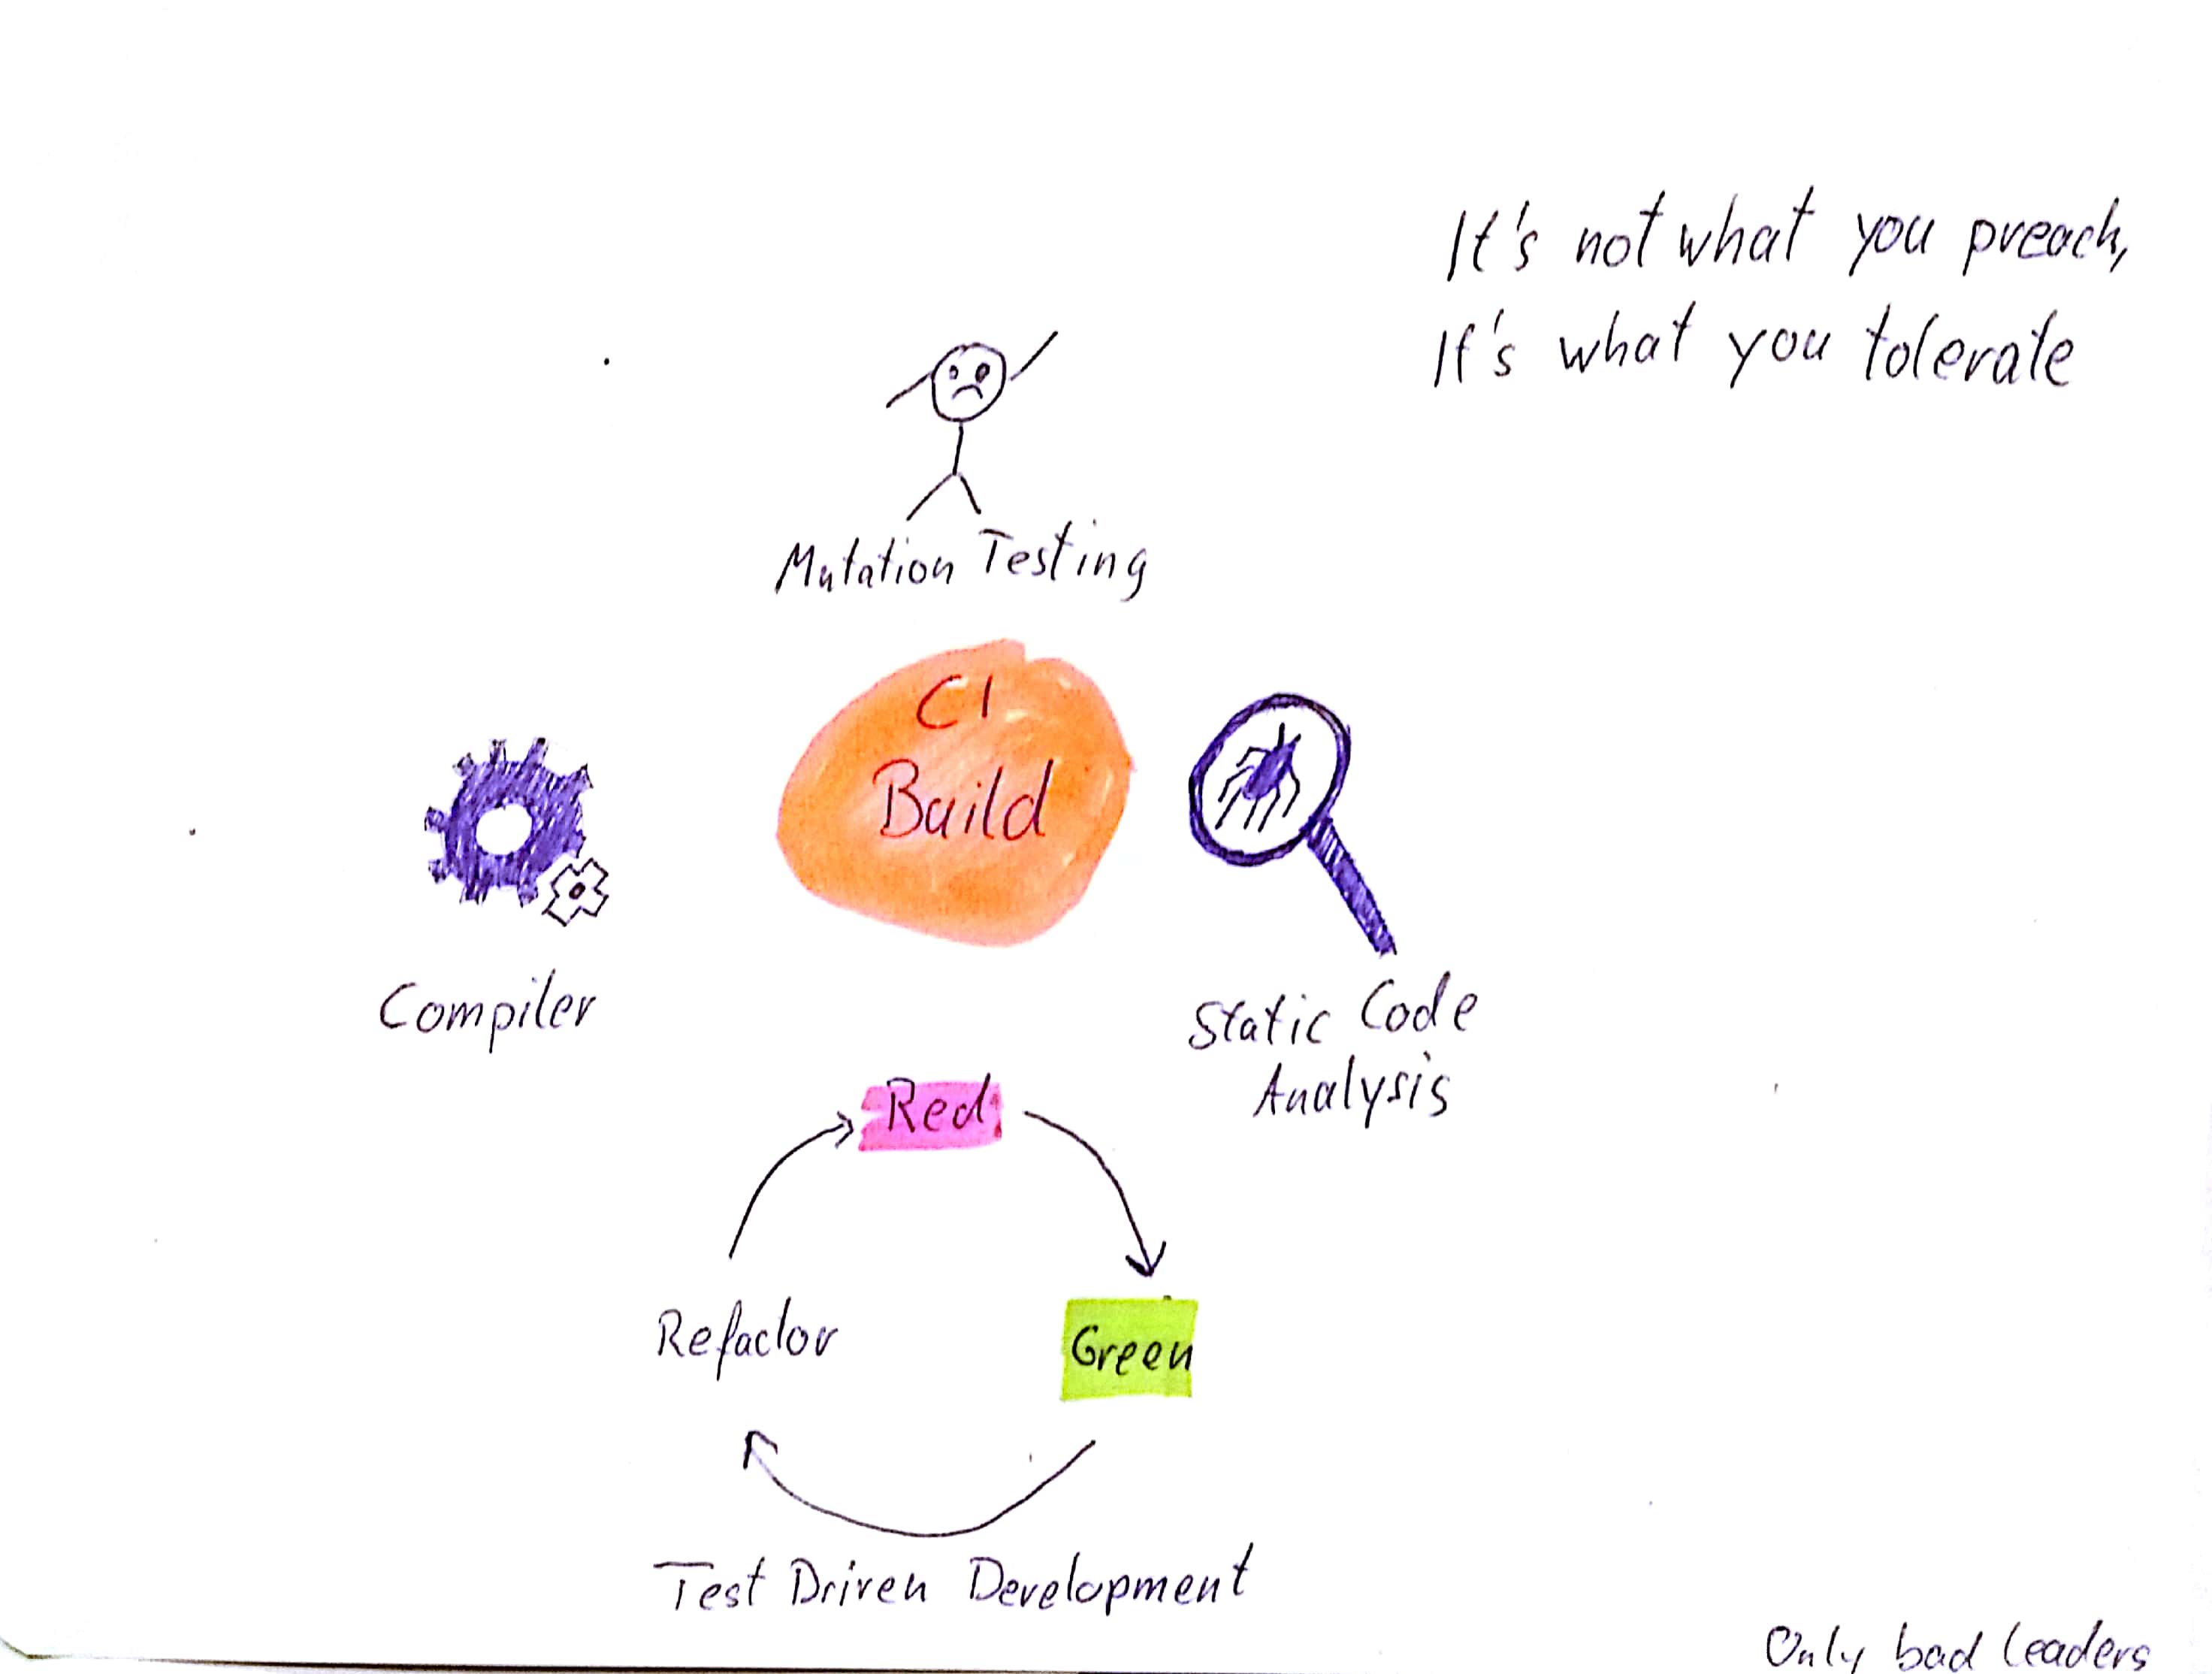 It's not what you preach,
It's what you tolerate
Mutation Testing
CI
Build
Compiler
Static Code
Analysis
Red
Green
Refactor
Test Driven Development
Only bad leaders